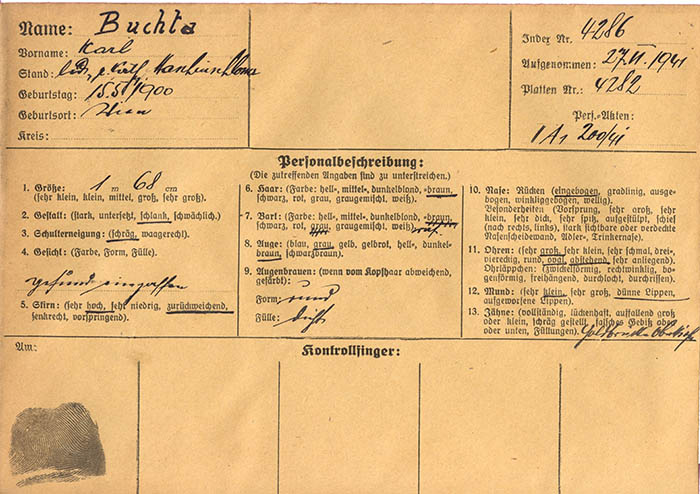 Name: Buchta
Vorname: Karl
Stand: led.,
Geburtstag: 15.5.1900
Geburtsort: Wien
Kreis:
Index Nr. 4286
Aufgenommen: 27.VI.1941
Platten Nr.: 4282
Pers.-Akten:
Personalbeschreibung:
(Die zutreffenden Angaben sind zu unterstreichen.)
1. Größe: 1 m 68 cm
(sehr klein, klein, mittel, groß, sehr groß).
2. Gestalt: (stark, untersetzt, schlank, schwächlich).
3. Schulterneigung: (schräg, waagerecht).
4. Gesicht: (Farbe, Form, Fülle).
gesund eingefallen
5. Stirn: (sehr hoch, sehr niedrig, zurückweichend,
senkrecht, vorspringend).
6. Haar: (Farbe: hell-, mittel-, dunkelblond, -braun,
schwarz, rot, grau, graugemischt, weiß).
7. Bart: (Farbe: hell-, mittel-, dunkelblond, -braun,
schwarz, rot, grau, graugemischt, weiß)
8. Auge: (blau, grau, gelb, gelbrot, hell-, dunkel-
braun, schwarzbraun).
9. Augenbrauen: (wenn vom Kopfhaar abweichend,
gefärbt):
Form: rund
Fülle: dicht
10. Nase: Rücken (eingebogen, gradlinig, ausge-
bogen, winkliggebogen, wellig).
Besonderheiten (Vorsprung, sehr groß, sehr
klein, sehr dick, sehr spitz, aufgestülpt, schief
(nach rechts, links), stark sichtbare oder verdeckte
Nasenscheidewand, Adler-, Trinkernase).
11. Ohren: (sehr groß, sehr klein, sehr schmal, drei-,
viereckig, rund, oval, abstehend, sehr anliegend).
Ohrläppchen: (zwickelförmig, rechtwinkelig, bo-
genförmig, freihängend, durchlocht, durchrissen).
12. Mund: (sehr klein, sehr groß, dünne Lippen,
aufgeworfene Lippen).
13. Zähne: (vollständig, lückenhaft, auffallend groß
oder klein, schräg gestellt, falsches Gebiß oben
oder unten, Füllungen). Goldbrücke Oberkiefer
Am:
Kontrollfinger: